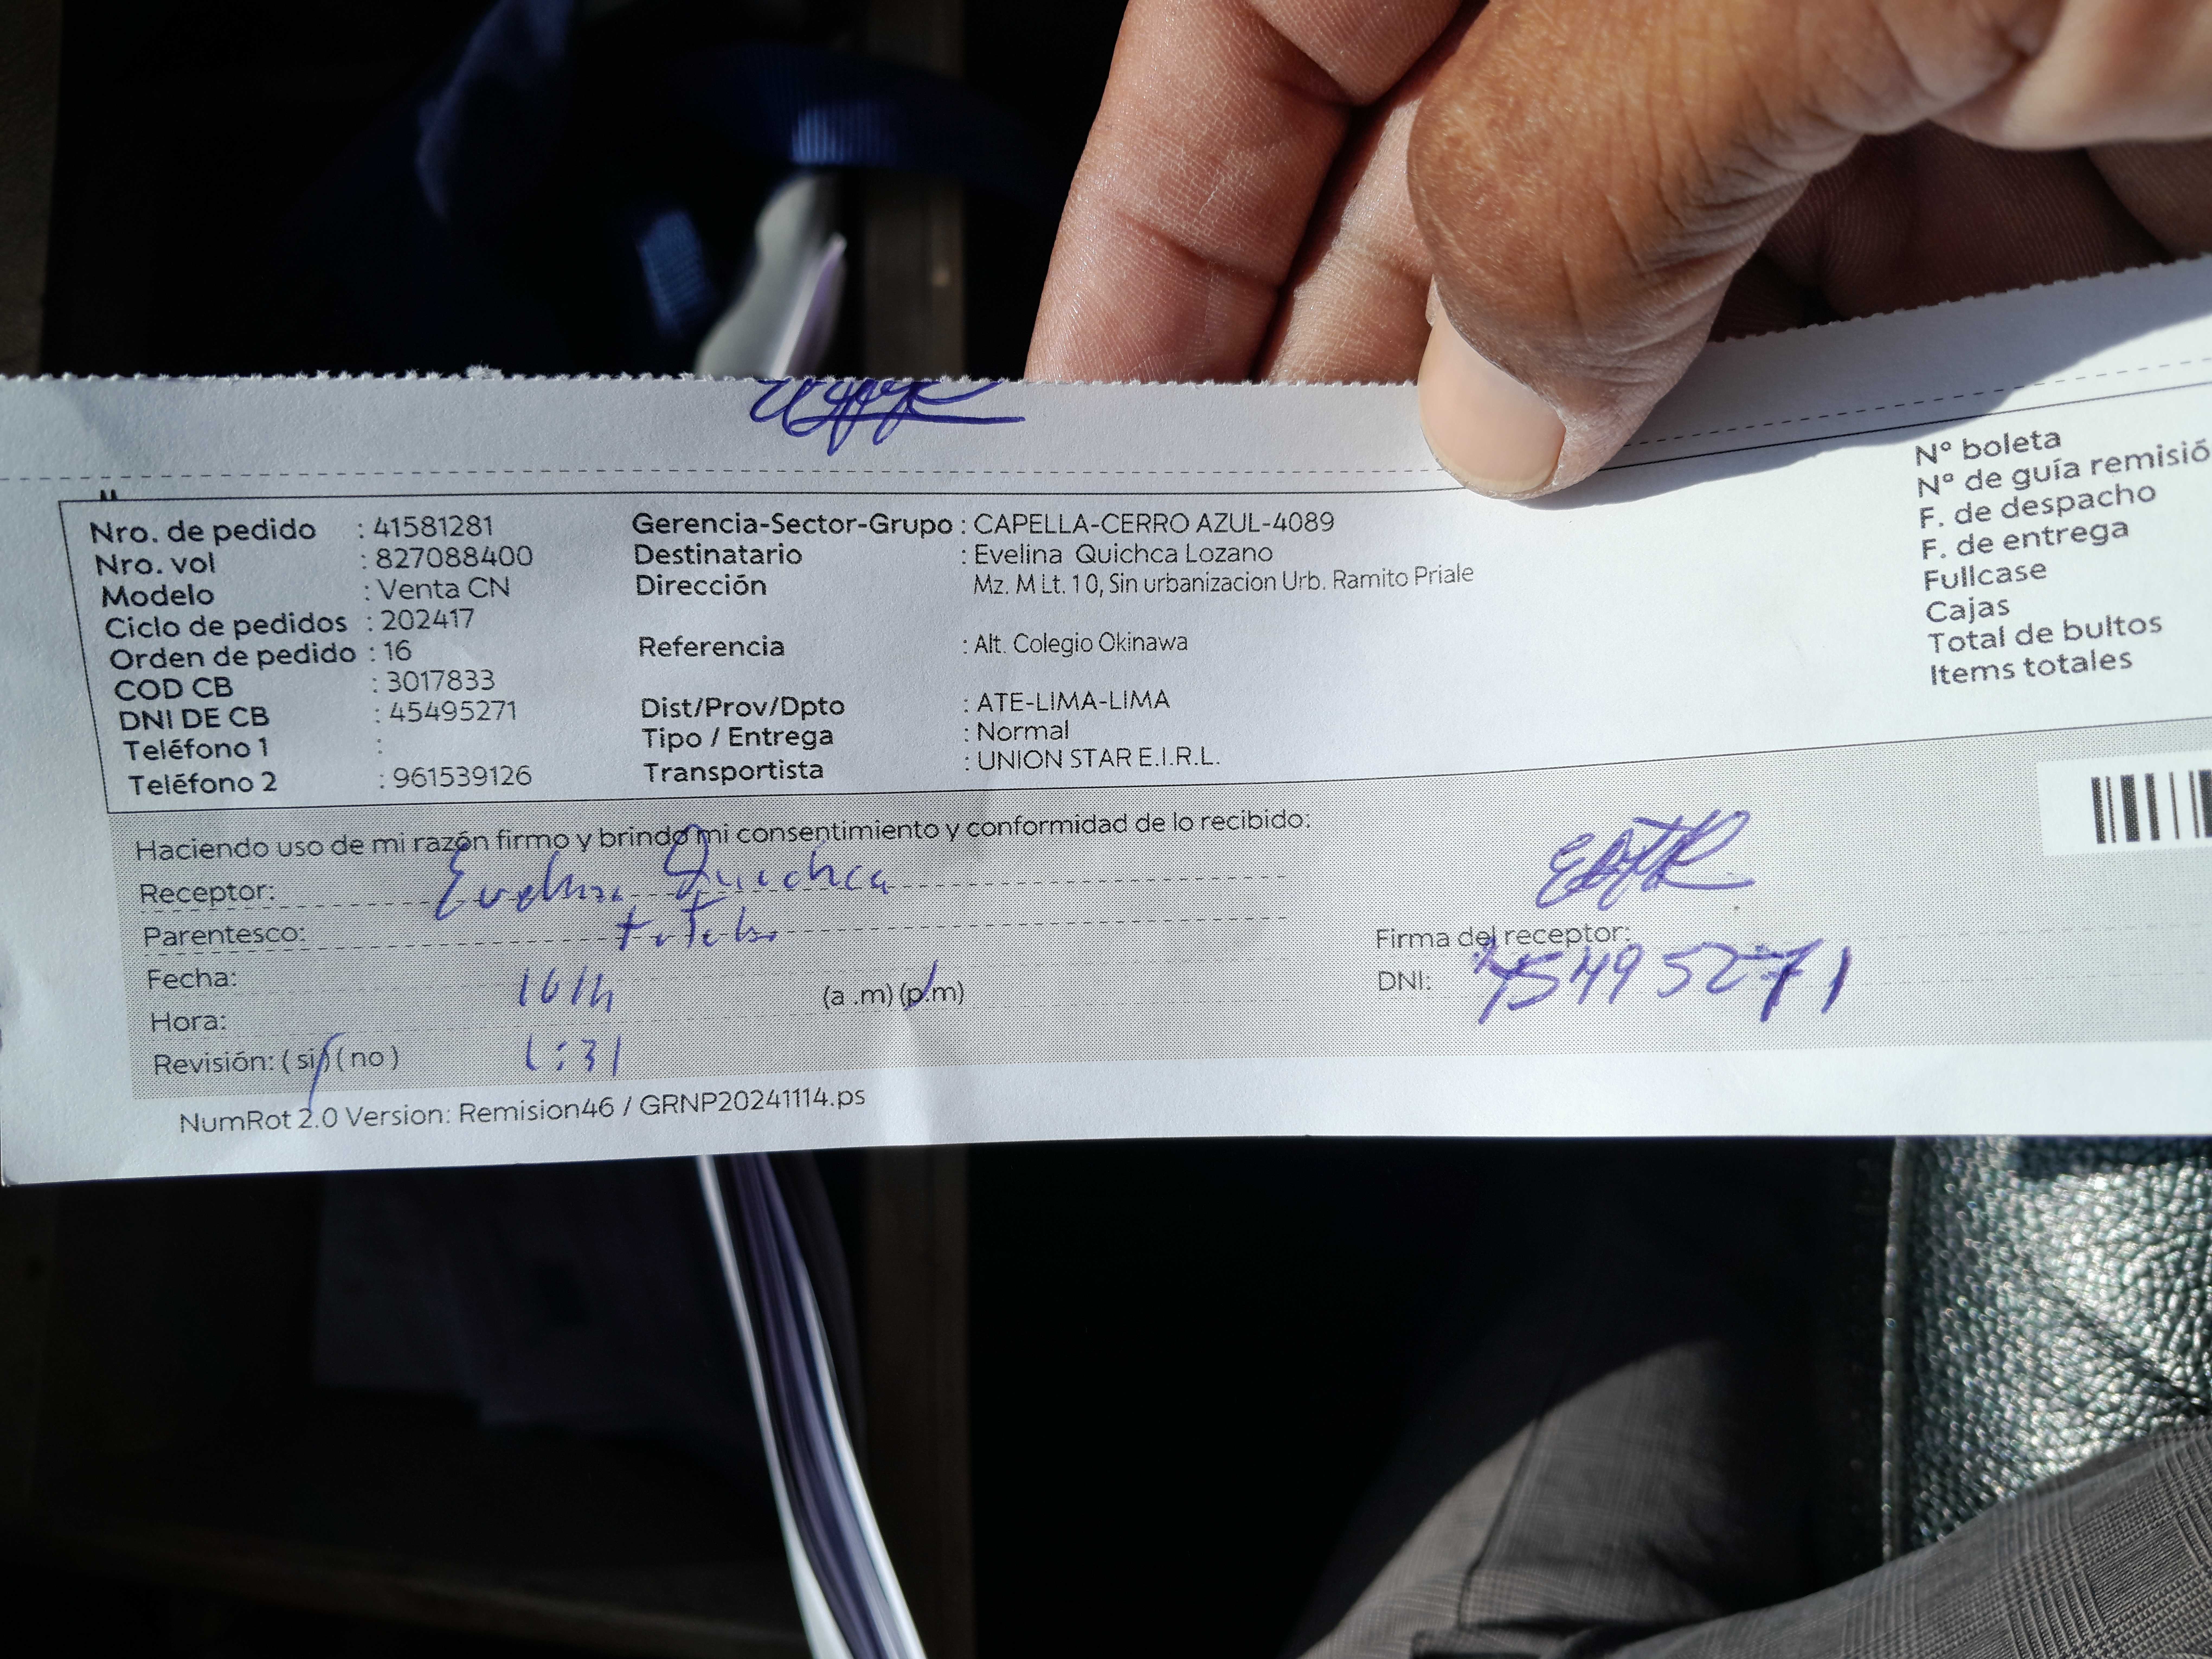 Nro. de pedido : 41581281
Nro. vol : 827088400
Modelo : Venta CN
Ciclo de pedidos : 202417
Orden de pedido : 16
COD CB : 3017833
DNI DE CB : 45495271
Teléfono 1 :
Teléfono 2 : 961539126
Gerencia-Sector-Grupo : CAPELLA-CERRO AZUL-4089
Destinatario : Evelina Quichca Lozano
Dirección Mz. M Lt. 10, Sin urbanizacion Urb. Ramito Priale
Referencia : Alt. Colegio Okinawa
Dist/Prov/Dpto : ATE-LIMA-LIMA
Tipo / Entrega : Normal
Transportista : UNION STAR E.I.R.L.
N° boleta
N° de guía remisió
F. de despacho
F. de entrega
Fullcase
Cajas
Total de bultos
Items totales
Haciendo uso de mi razón firmo y brindo mi consentimiento y conformidad de lo recibido:
Receptor: Evelina Quichca
Parentesco:
Fecha: (a .m) (p.m)
Hora:
Revisión: ( si ) ( no ) 1:31
Firma del receptor:
DNI: 45495271
NumRot 2.0 Version: Remision46 / GRNP20241114.ps